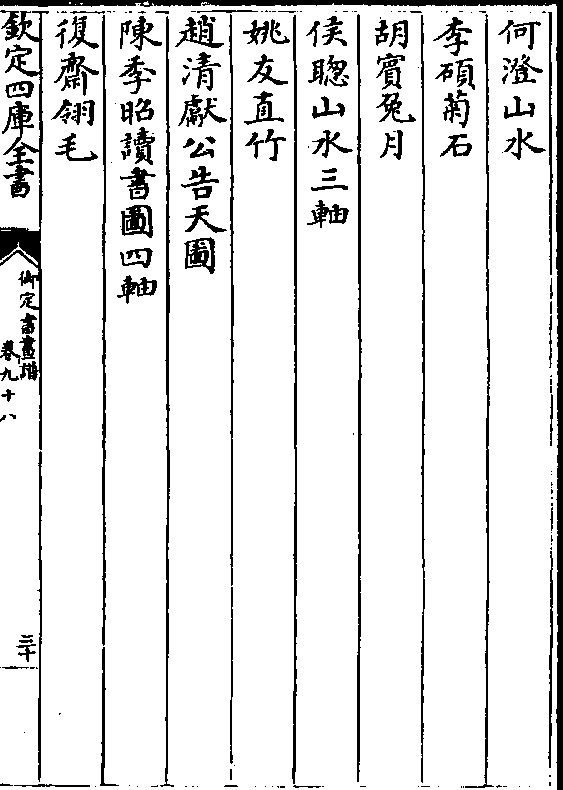 何澄山水
李碩菊石
胡賓兔月
侯聰山水三軸
姚友直竹
趙清獻公告天圖
陳季昭讀書圖四軸
復齋翎毛
欽定四庫全書
御定書畫譜
卷九十八
三十